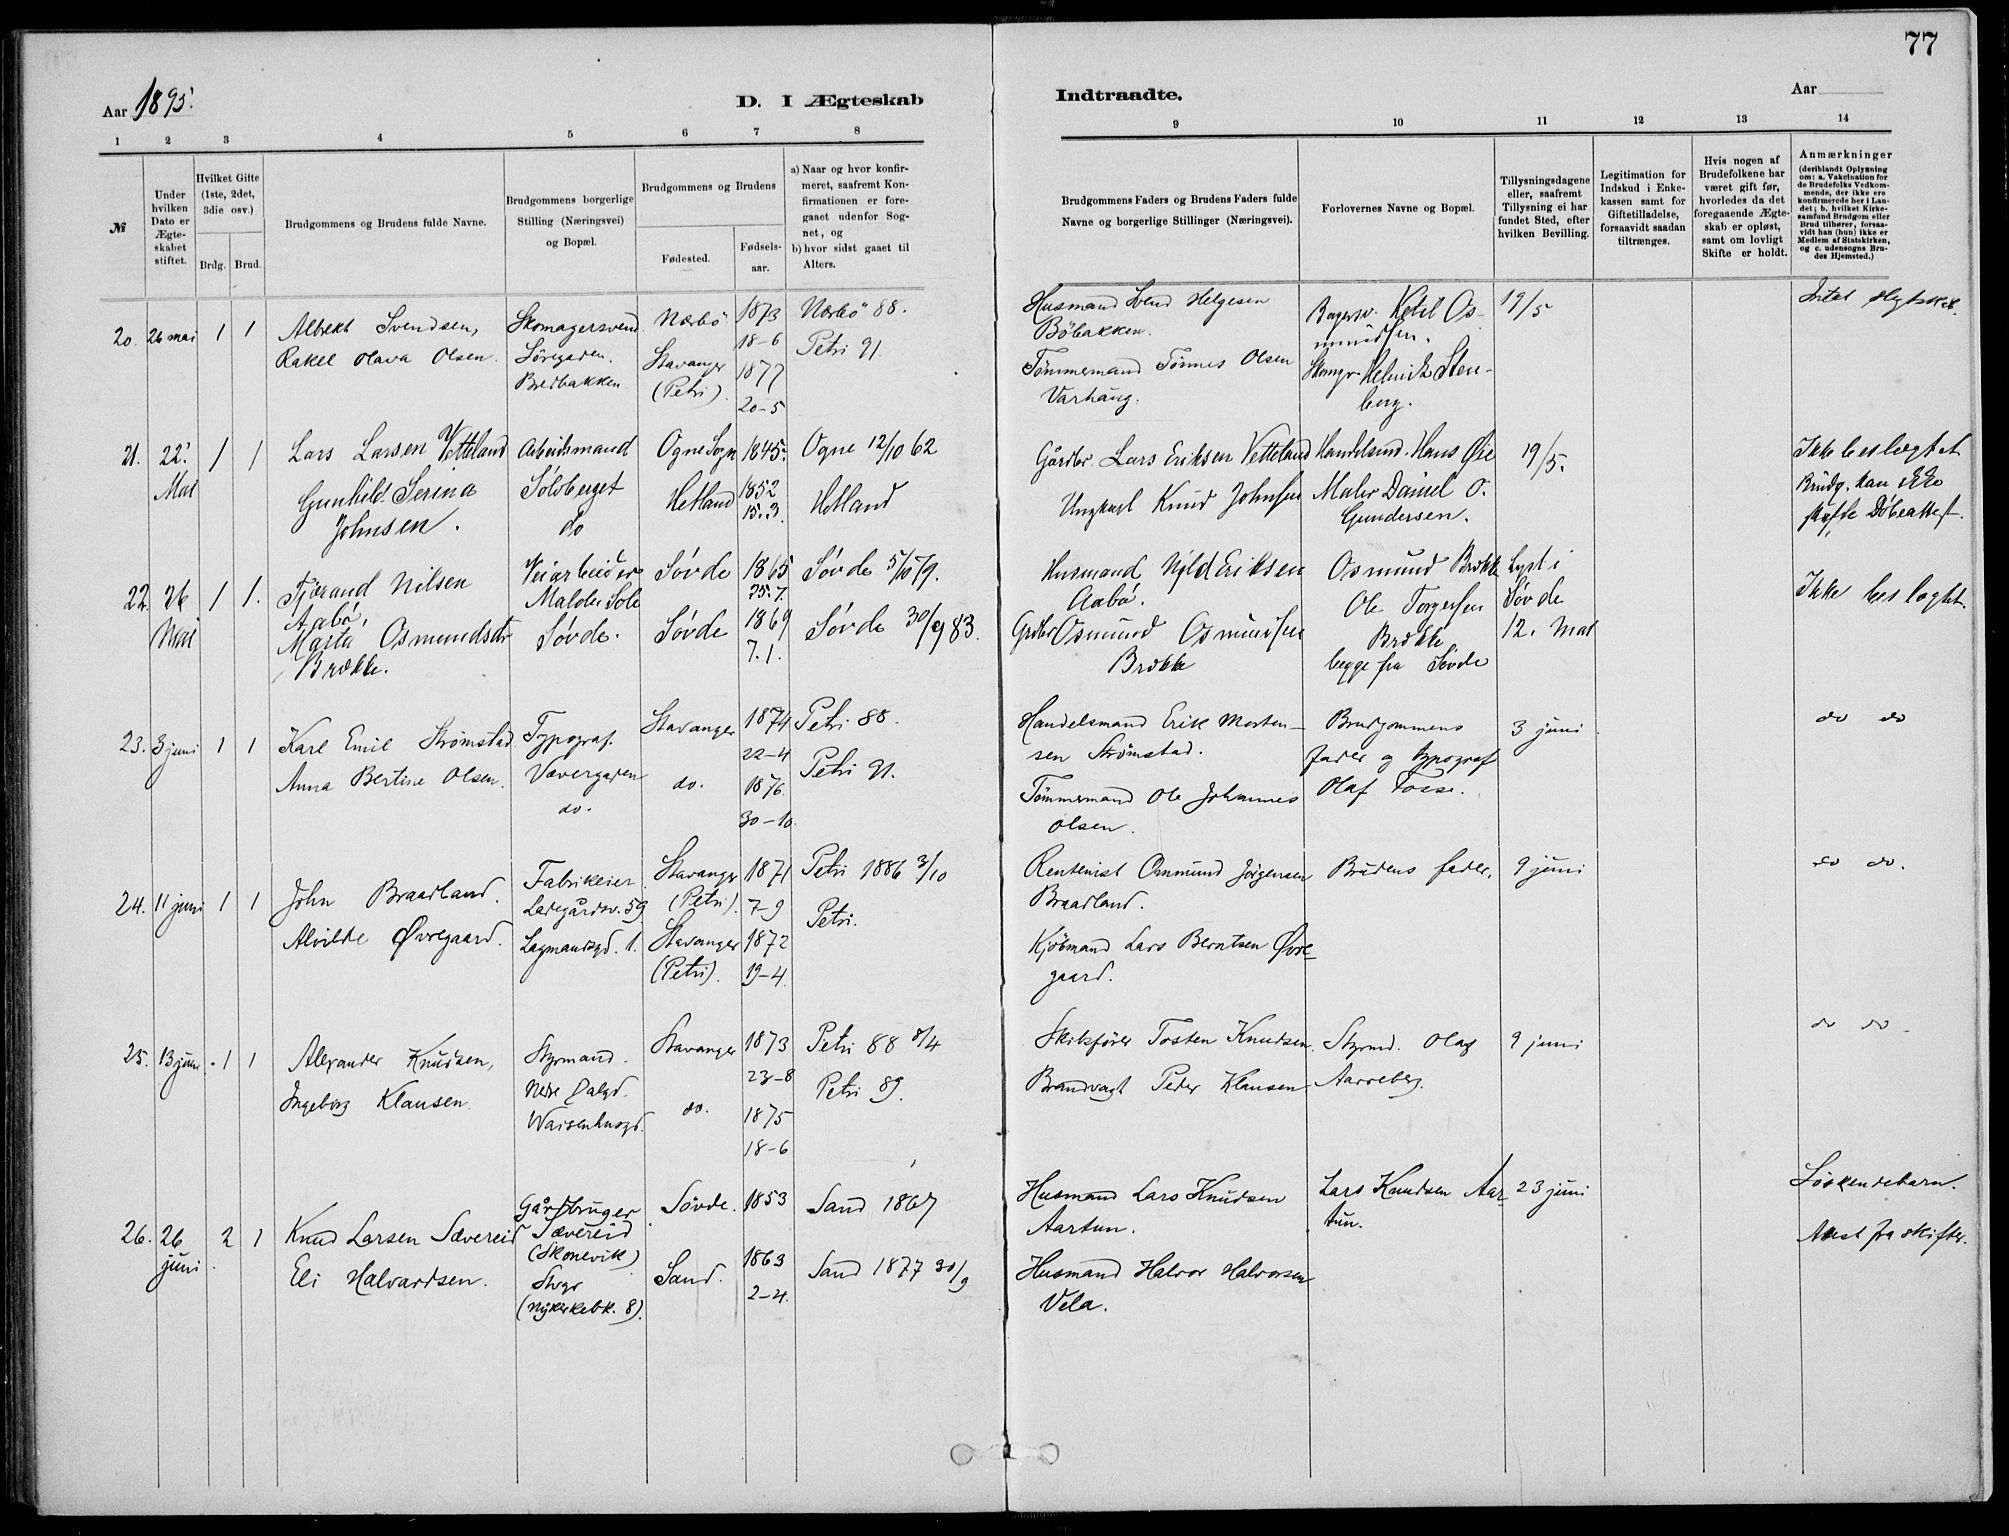 77
Aar 1895.
D. I Ægteskab
Indtraadte.
Aar
1 2 3 4 5 6 7 8
9 10 11 12 13 14
№
Under hvilken Dato er Ægteskabet stiftet.
Hvilket Gifte (1ste, 2det, 3die osv.)
Brdg. Brud.
Brudgommens og Brudens fulde Navne.
Brudgommens borgerlige Stilling (Næringsvei) og Bopæl.
Brudgommens og Brudens
Fødested.
Fødsels-aar.
a) Naar og hvor konfir-
meret, saafremt Kon-
firmationen er fore-
gaaet udenfor Sog-
net, og
b) hvor sidst gaaet til
Alters.
Brudgommens Faders og Brudens Faders fulde
Navne og borgerlige Stillinger (Næringsvei).
Forlovernes Navne og Bopæl.
Tillysningsdagene
eller, saafremt
Tillysning ei har
fundet Sted, efter
hvilken Bevilling.
Legitimation for
Indskud i Enke-
kassen samt for
Giftetilladelse,
forsaavidt saadan
tiltrænges.
Hvis nogen af
Brudefolkene har
været gift før,
hvorledes da det
foregaaende Ægte-
skab er opløst,
samt om lovligt
Skifte er holdt.
Anmærkninger
(deriblandt Oplysning
om: a. Vakcination for
de Brudefolks Vedkom-
mende, der ikke ere
konfirmerede her i Lan-
det; b. hvilket Kirke-
samfund Brudgom eller
Brud tilhører, forsaa-
vidt han (hun) ikke er
Medlem af Statskirken,
og c. udensogns Bru-
des Hjemsted.)
20. 26 mai 1 1
Albrekt Svendsen,
Rakel Olava Olsen.
Skomagersvend
Söregaden.
Bredbakken.
Nærbö
Stavanger
(Petri).
1873
18-6
1877
20-5
Nærbö 88.
Petri 91.
Husmand Svend Helgesen
Böbakken.
Tömmermand Tönnes Olsen
Varhaug.
Bagersv. Ketil Os-
mundsen.
Skomgr. Helmik Sten-
berg.
19/5
Intet slegtskab.
21. 22. Mai 1 1
Lars Larsen Vetteland
Gunhild Serina
Johnsen.
Arbeidsmand
Sölvberget
do
Ogne Sogn
Hetland
1845.
1852
15.3.
Ogne 12/10 62
Hetland
Gårdbr. Lars Eriksen Vetteland
Ungkarl Knud Johnsen
Handelsmd. Hans Øie
Maler Daniel O.
Gundersen.
19/5.
Ikke beslægtet
Brudg. kan ikke
skaffe Döbeattest.
22. 26 Mai 1 1.
Fjærand Nilsen
Aabö,
Marta Osmundsdtr
Brække.
Veiarbeider
Malde Sole
Søvde.
Søvde
Søvde
1865
25.7.
1869
7.1.
Søvde 5/10 79.
Søvde 30/9 83.
Husmand Nils Eriksen
Aabö.
Grdbr Osmund Osmundsen
Brække
Osmund Brække
Ole Torgersen
Brække
begge fra Søvde
Lyst i
Søvde
12. Mai
Ikke beslægtet.
23. 3 juni 1 1
Karl Emil Strømstad.
Anna Bertine Olsen.
Typograf.
Vævergaden
do.
Stavanger
do.
1874
22-4
1876.
30-10.
Petri 88.
Petri 91.
Handelsmand Erik Morten-
sen Strömstad.
Tömmermand Ole Johannes
Olsen.
Brudgommens
fader og typograf
Olaf Fosse.
3 juni
do do
24. 11 juni 1 1
John Braadland.
Alvilde Øvregaard.
Fabrikeier
Ladegårdsv. 59
Lagmandsgd. 1.
Stavanger
(Petri).
Stavanger
(Petri).
1871
7-9
1872
19-4.
Petri 1886 3/10
Petri.
Rentenist Ommund Jörgensen
Braadland.
Kjöbmand Lars Berntsen Øvre-
gaard.
Brudens fader.
9 juni
do do.
25. 13 juni 1 1
Alexander Knudsen,
Ingeborg Klausen.
Styrmand.
Nedre Dalgd.
Waisenhusgd.
Stavanger
do.
1873
23-8
1875
18-6
Petri 88 8/4
Petri 89.
Skibsförer Tosten Knudsen.
Brandvagt Peder Klausen.
Styrmd. Olaf
Aarreberg.
9 juni
do do.
26. 26 juni 2 1
Knud Larsen Sævereid
Eli Halvardsen.
Gårdbruger
Sævereid
(Skonevik)
(Nykirkebk. 8).
Søvde.
Sand.
1853
1863
2-4.
Sand 1867
Sand 1877 30/9
Husmand Lars Knudsen
Aartun.
Husmand Halvor Halvorsen
Vela.
Lars Knudsen Aar-
tun.
23 juni
Söskendebarn.
Attest fra skifter.